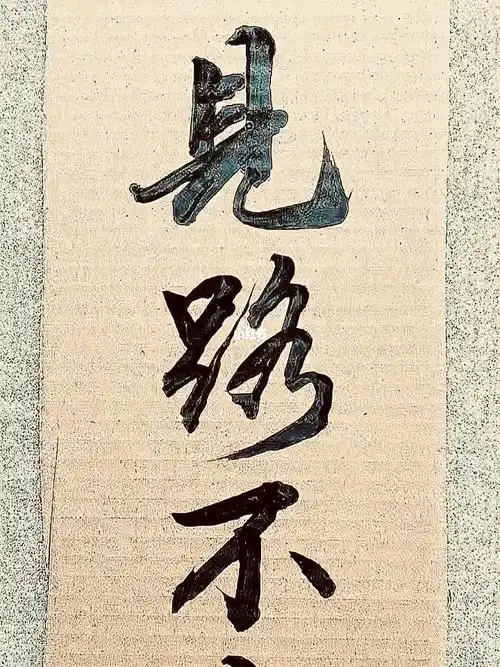 見路不